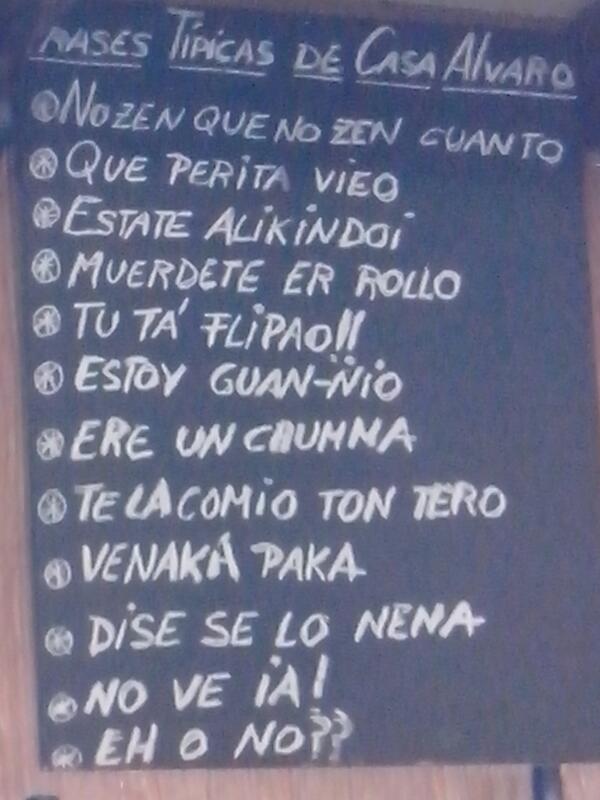 FRASES TÍPICAS DE CASA ALVARO
NO ZEN QUE NO ZEN CUANTO
QUE PERITA VIEO
ESTATE ALIKINDOI
MUERDETE ER ROLLO
TU TA' FLIPAO!!
ESTOY GUAN-ÑIO
ERE UN CHUMNA
TE LA COMIO TON TERO
VENAKÁ PAKA
DISE SE LO NENA
NO VE IA!
EH O NO??